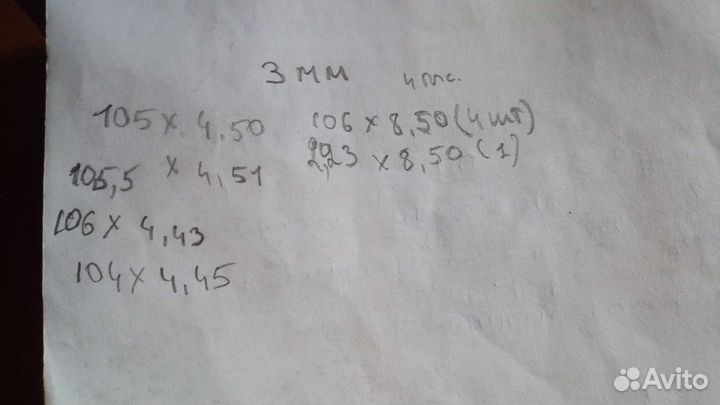 3 мм
105 x 4,50
105,5 x 4,51
106 x 4,43
104 x 4,45
106 x 8,50 (4 шт)
x 8,50 (1)
Avito